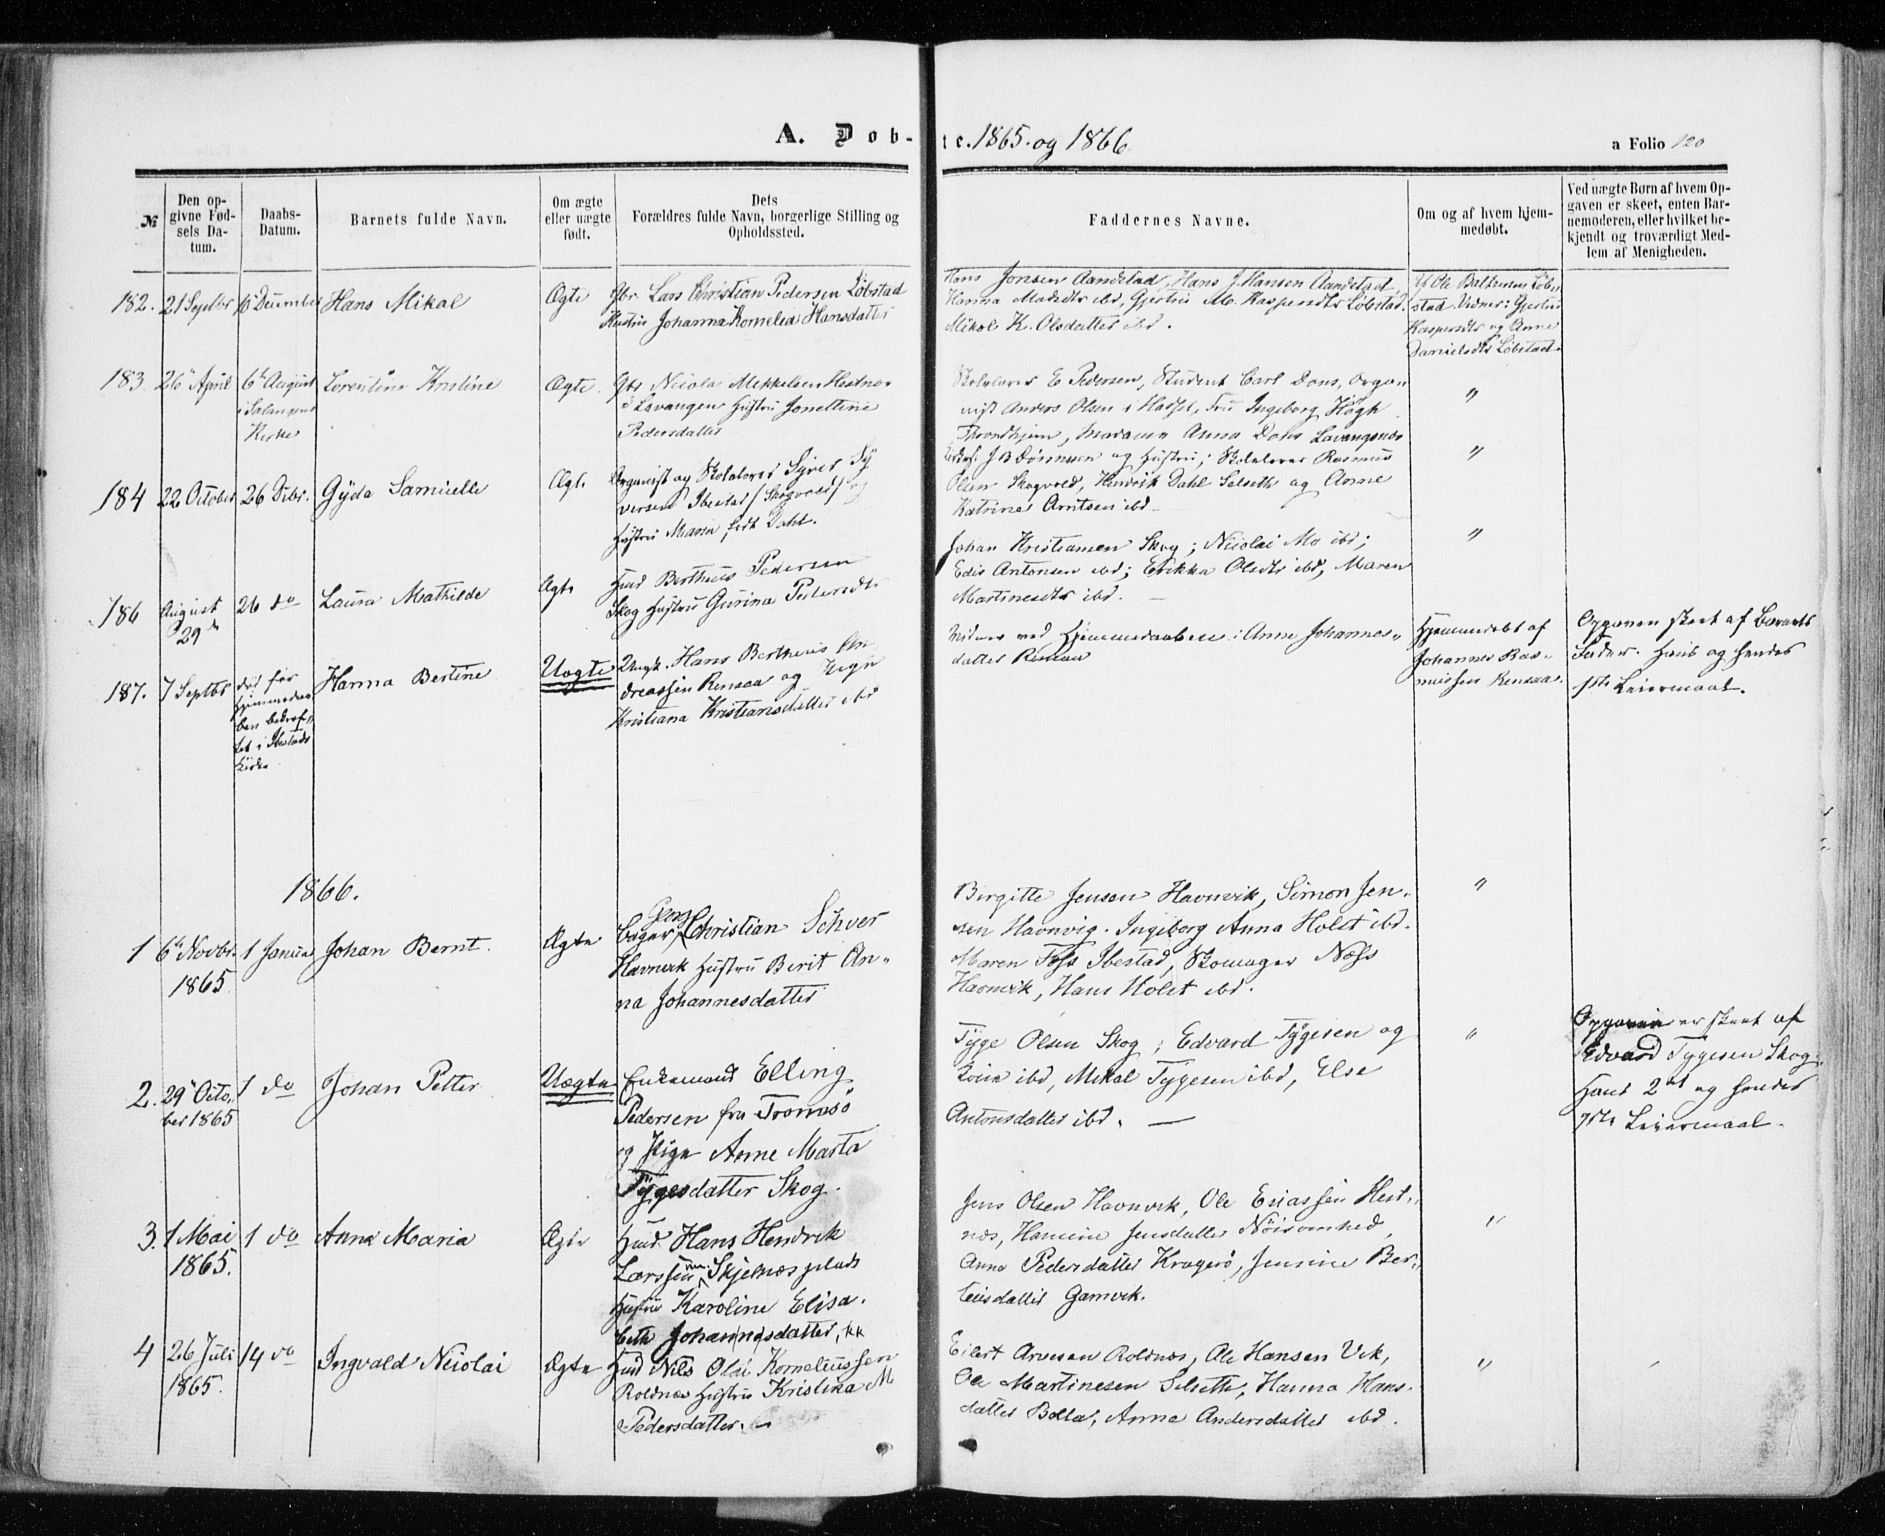 A. Døb-
te. 1865. og 1866
a Folio 120
№
Den op-
givne Fød-
sels Da-
tum.
Daabs-
Datum.
Barnets fulde Navn.
Om ægte
eller uægte
født.
Dets
Forældres fulde Navn, borgerlige Stilling og
Opholdssted.
Faddernes Navne.
Om og af hvem hjem-
medøbt.
Ved uægte Børn af hvem Op-
gaven er skeet, enten Bar-
nemoderen, eller hvilket be-
kjendt og troværdigt Med-
lem af Menigheden.
182. 21 Septbr
December
Hans Mikal
Ægte
Gbr. Lars Christian Pedersen Løbstad
Hustru Johanna Kornelia Hansdatter
Hans Jonsen Aandstad, Hans J. Hansen Aandstad,
Hanna Madsdtr ibd, Gjertru M. Kaspersdtr Løbstad.
Mikal K. Olsdatter ibd.
Af Ole Baltzersen Løb-
stad. Vidner: Gjertru
Kaspersdtr og Anne
Danielsdtr Løbstad.
183. 26 April
6te August
i Salangens
Kirke
Lorentine Kristine
Ægte.
Gbr Nicola Mikkelsen Hestnes
i Lavangen Hustru Jonettine
Pedersdatter
Skolelærer E Pedersen, Student Carl Dons, Organ
nist Anders Olsen i Hassel, Fru Ingeborg Høgh
Throndhjem, Madame Anna Dons Lavangsnes
"
184 22 October
26 Debr.
Gyda Samuelle
Ægt.
Organist og Skolelærer Syver Sy
versen Ibestad / Skogvold / og
Hustru Maren født Dahl.
J B Dørmsen og Hustru; Skolelærer Rasmus
Olsen Skogvold, Hendrik Dahl Selseth og Anne
Katrine Arntsen ibd
"
186 August
29
26 do
Laura Mathilde
Ægte
Huud Bertheus Pedersen
Skog Hustru Gurina Pedersdtr
Johan Kristiansen Skog; Nicolai Mo ibd;
Edis Antonsen ibd; Erikka Olsdtr ibd, Maren
Martinesdtr ibd.
"
187. 7 Septbr
Hjemmedaa-
ben bekræf-
tet i Ibestads
Kirke
Hanna Bertine
Uægte
Ungk. Hans Bertheus An
dreassen Rensaa og Pige
Kristiana Kristiansdatter ibd
Vidner ved Hjemmedaaben: Anne Johannes-
datter Rensaa
Hjemmedøbt af
Johannes Ras-
mussen Rensaa.
Opgaven skeet af Barnets
Fader. Hans og hendes
1ste Leiermaal.
1866.
1 6te Novbr.
1865
1 Janua
Johan Bernt.
Ægte
Georg
Bager Christian Schver
Havnvik Hustru Berit An-
na Johannesdatter
Birgitte Jensen Havnvik, Simon Jen-
sen Havnvig. Ingeborg Anna Holst ibd.
Maren Foss Ibestad, Skomager Næss
Havnvik, Hans Holst ibd.
"
2. 29 Octo-
ber 1865
1 do
Johan Petter
Uægte
Enkemand Elling
Pedersen fra Tromsö
og Pige Anne Marta
Tygesdatter Skog.
Tyge Olsen Skog; Edvard Tygesen og
Kvin ibd, Mikal Tygesen ibd, Else
Antonsdatter ibd.
"
Opgaven er skeet af
Edvard Tygesen Skog.
Hans 2det og hendes
1ste Leiermaal.
3. 1 Mai
1865.
1 do
Anna Maria
Ægte
Huud. Hans Hendrik
Larssen Skjelnes plads
Hustru Karoline Elisa-
beth Johannesdatter,
Jens Olsen Havnvik, Ole Esiassen Hest-
nes, Hansine Jensdatter Nöisomhed,
Anna Pedersdatter Kragerö, Jensine Ber-
teusdatter Gamvik.
"
4 26 Juli
1865.
14 do
Ingvald Nicolai
Ægte
Huud Nils Olai Korneliussen
Roldnes Hustru Kristina M
Pedersdatter.
Eilert Arnesen Roldnes, Ole Hansen Vik,
Ole Martinesen Selseth, Hanna Hans-
datter Bolla, Anna Andersdatter ibd.
"